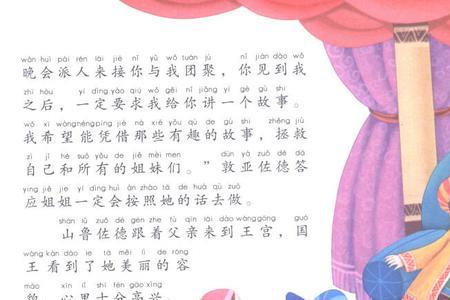 wǎn huì pài rén lái jiē nǐ yǔ wǒ tuán jù nǐ jiàn dào wǒ
晚会派人来接你与我团聚，你见到我
zhī hòu yí dìng yào qiú wǒ gěi nǐ jiǎng yí gè gù shi
之后，一定要求我给你讲一个故事。
wǒ xī wàng néng píng jiè nà xiē yǒu qù de gù shi zhěng jiù
我希望能凭借那些有趣的故事，拯救
zì jǐ hé suǒ yǒu de jiě mèi men dūn yà zuǒ dé dá
自己和所有的姐妹们。”敦亚佐德答
yìng jiě jie yí dìng huì àn zhào tā de huà qù zuò
应姐姐一定会按照她的话去做。
shān lǔ zuǒ dé gēn zhe fù qīn lái dào wáng gōng guó
山鲁佐德跟着父亲来到王宫，国
wáng kàn dào le tā měi lì de róng
王看到了她美丽的容
mào xīn lǐ shí fēn gāo xìng
貌，心里十分高兴。